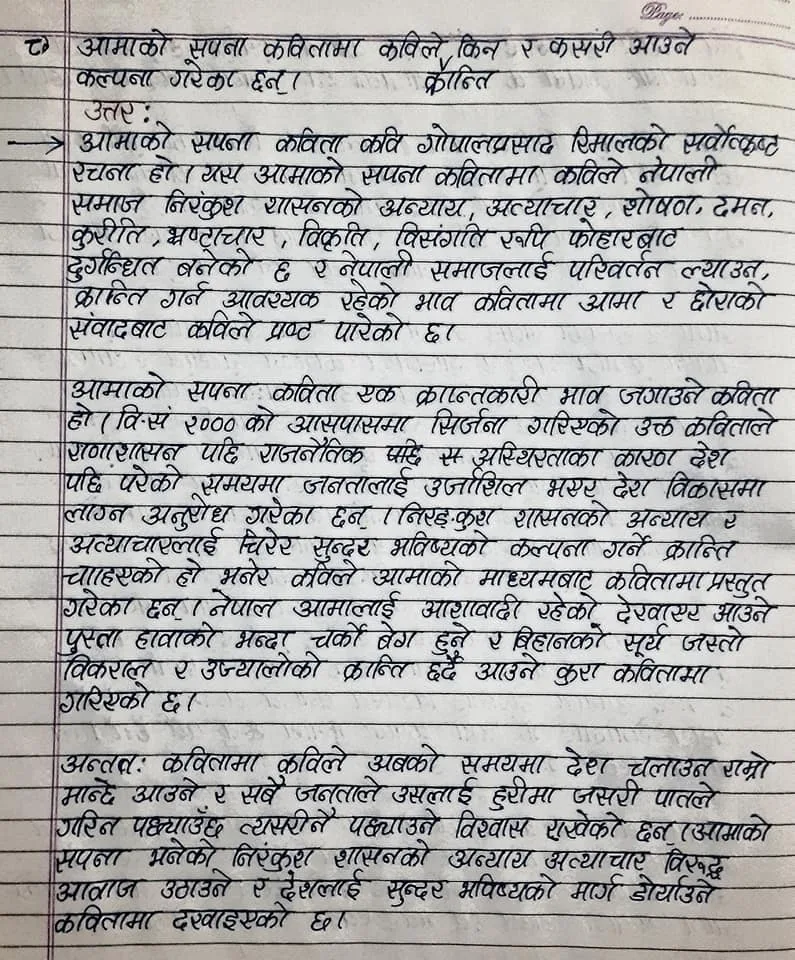 Page:
८) आमाको सपना कवितामा कविले किन र कसरी आउने
कल्पना गरेका छन्। क्रान्ति
उत्तर:
→ आमाको सपना कविता कवि गोपालप्रसाद रिमालको सर्वोत्कृष्ट
रचना हो। यस आमाको सपना कवितामा कविले नेपाली
समाज निरंकुश शासनको अन्याय, अत्याचार, शोषण, दमन,
कुरीति, भ्रष्टाचार, विकृति, विसंगति रूपि फोहारबाट
दुर्गन्धित बनेको छ र नेपाली समाजलाई परिवर्तन ल्याउन,
क्रान्ति गर्न आवश्यक रहेको भाव कवितामा आमा र छोराको
संवादबाट कविले प्रष्ट पारेको छ।
आमाको सपना कविता एक क्रान्तकारी भाव जगाउने कविता
हो। वि.सं २००० को आसपासमा सिर्जना गरिएको उक्त कविताले
राणाशासन पछि राजनैतिक अस्थिरताका कारण देश
पछि परेको समयमा जनतालाई उर्जाशिल भएर देश विकासमा
लाग्न अनुरोध गरेका छन्। निरङ्कुश शासनको अन्याय र
अत्याचारलाई चिरेर सुन्दर भविष्यको कल्पना गर्ने क्रान्ति
चााहिएको हो भनेर कविले आमाको माध्यमबाट कवितामा प्रस्तुत
गरेका छन्। नेपाल आमालाई आशावादी रहेको देखाएर आउने
पुस्ता हावाको भन्दा चर्को बेग हुने र बिहानको सूर्य जस्तो
विकराल र उज्यालोको क्रान्ति छर्दै आउने कुरा कवितामा
गरिएको छ।
अन्तत: कवितामा कविले अबको समयमा देश चलाउन राम्रो
मान्छे आउने र सबै जनताले उसलाई हुरीमा जसरी पातले
गरिन पछ्याउँछ त्यसरीनै पछ्याउने विश्वास राखेको छन्। आमाको
सपना भनेको निरंकुश शासनको अन्याय अत्याचार विरुद्ध
आवाज उठाउने र देशलाई सुन्दर भविष्यको मार्ग डोर्याउने
कवितामा दखाइएको छ।